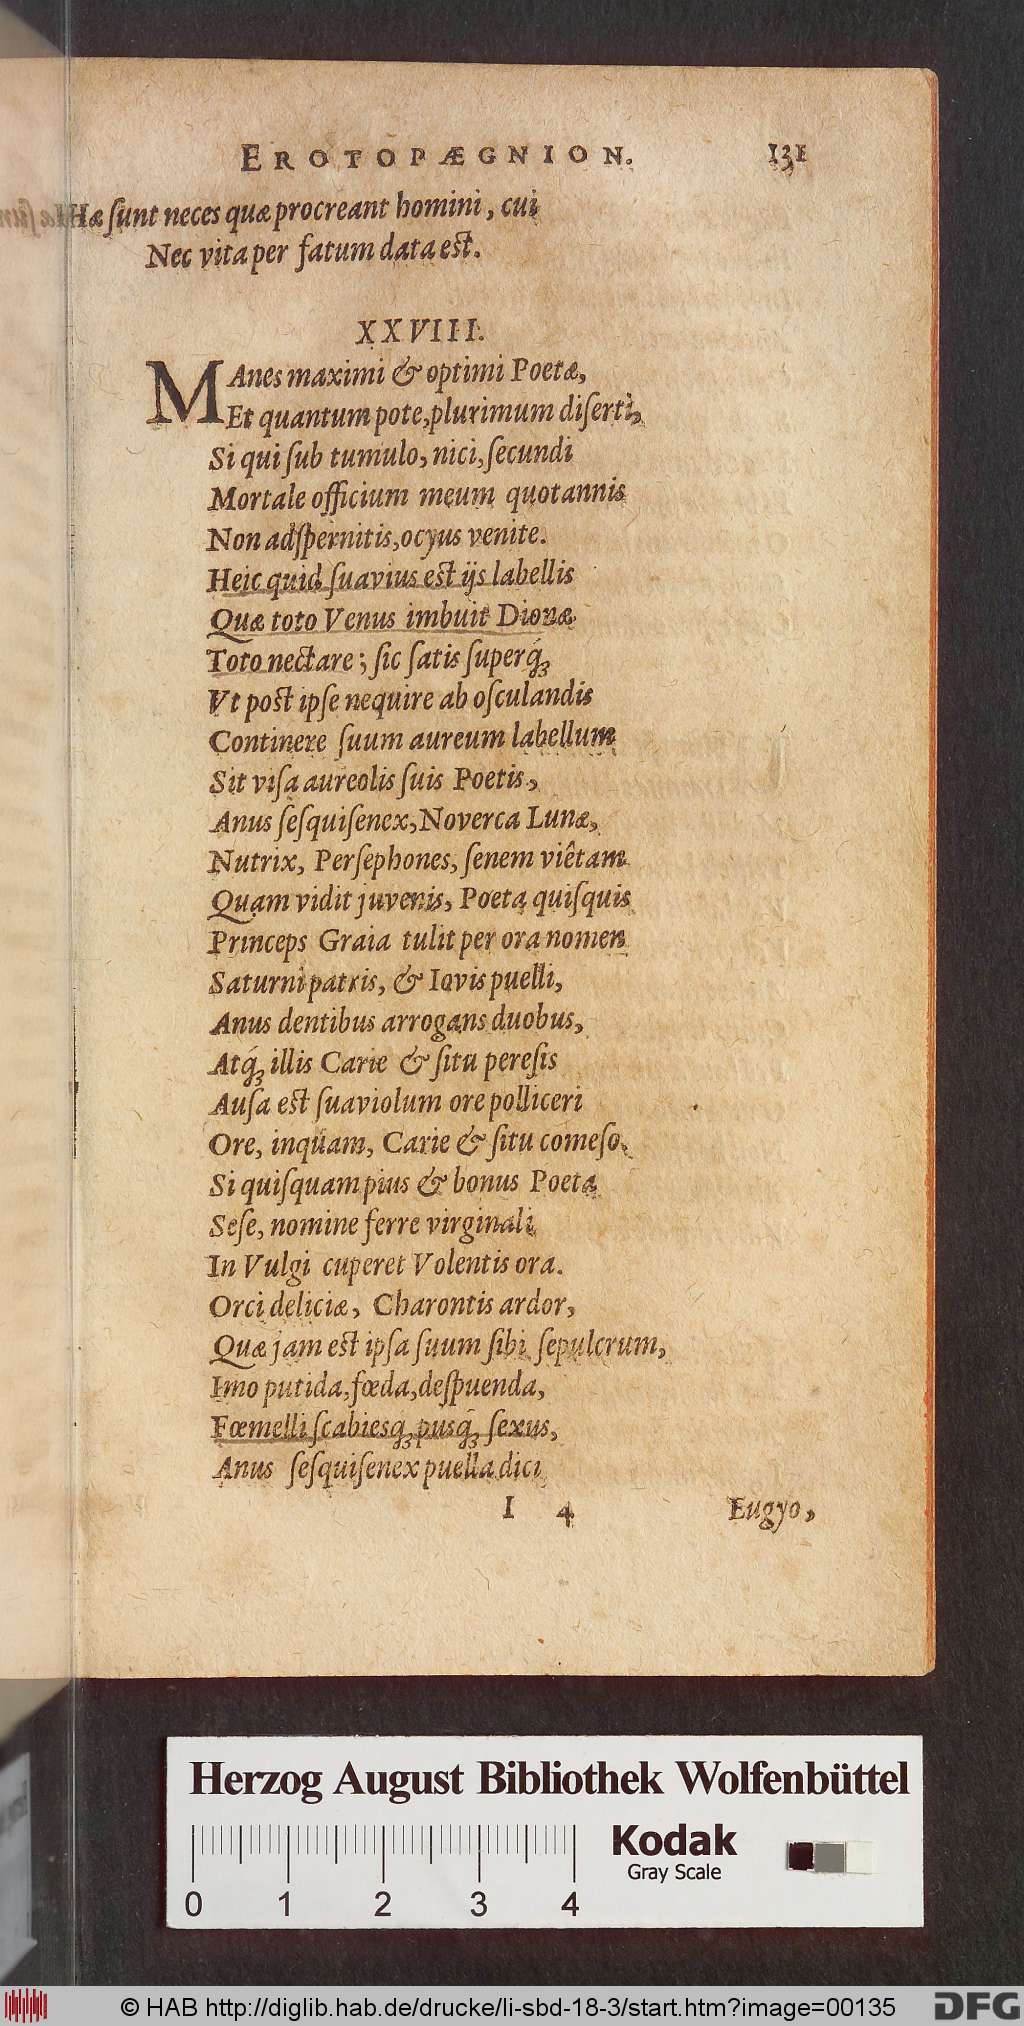 EROTOPÆGNION. 131
Hæ ſunt neces quæ procreant homini, cui
Nec vita per fatum data eſt.
XXVIII.
MAnes maximi & optimi Poetæ,
Et quantum pote, plurimum diſerti,
Si qui ſub tumulo, nici, ſecundi
Mortale officium meum quotannis
Non adſpernitis, ocyus venite.
Heic quid ſuavius eſt ijs labellis
Quæ toto Venus imbuit Dionæ
Toto nectare; ſic ſatis ſuperq́ꝫ
Vt poſt ipſe nequire ab oſculandis
Continere ſuum aureum labellum
Sit viſa aureolis ſuis Poetis,
Anus ſeſquiſenex, Noverca Lunæ,
Nutrix, Perſephones, ſenem viêtam
Quam vidit juvenis, Poeta quiſquis
Princeps Graia tulit per ora nomen
Saturni patris, & Iovis puelli,
Anus dentibus arrogans duobus,
Atq́ꝫ illis Carie & ſitu pereſis
Auſa eſt ſuaviolum ore polliceri
Ore, inquam, Carie & ſitu comeſo.
Si quiſquam pius & bonus Poeta
Seſe, nomine ferre virginali
In Vulgi cuperet Volentis ora.
Orci deliciæ, Charontis ardor,
Quæ jam eſt ipſa ſuum ſibi ſepulcrum,
Imo putida, fœda, deſpuenda,
Fœmelli ſcabieſq́ꝫ puſq́ꝫ ſexus,
Anus ſeſquiſenex puella dici
I 4 Eugyo,
Herzog August Bibliothek Wolfenbüttel
Kodak
Gray Scale
0 1 2 3 4
© HAB http://diglib.hab.de/drucke/li-sbd-18-3/start.htm?image=00135
DFG